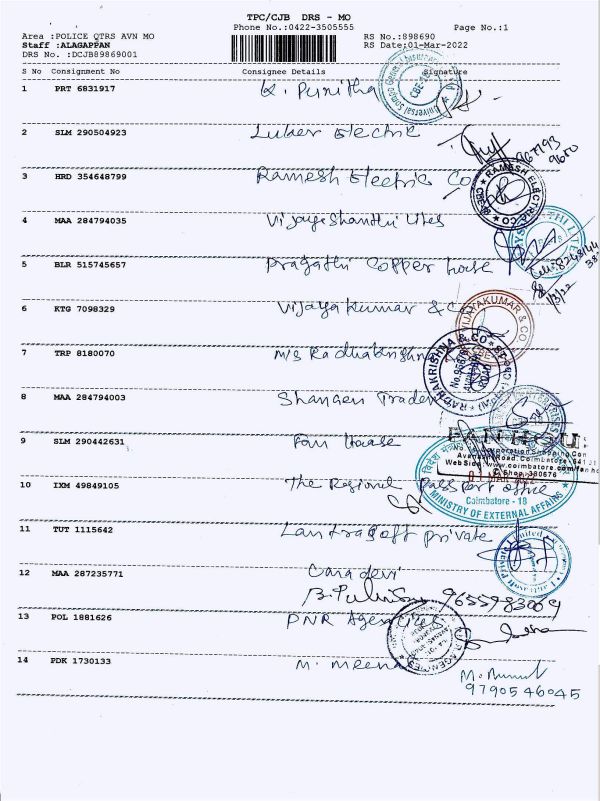 TPC/CJB DRS - MO
Phone No.:0422-3505555 Page No.:1
Area :POLICE QTRS AVN MO RS No.:898690
Staff :ALAGAPPAN RS Date:01-Mar-2022
DRS No. :DCJB89869001
S No Consignment No Consignee Details Signature
1 PRT 6831917 K. Punitha
2 SLM 290504923 Luker Electric
3 HRD 354648799 Ramesh Electric Co
4 MAA 284794035 Vijaya Shanthi Lites
5 BLR 515745657 Pragathi Copper house
6 KTG 7098329 Vijaya kumar & Co
7 TRP 8180070 M/s Radhakrishna
8 MAA 284794003 Traders
9 SLM 290442631 Fan House
10 IXM 49849105 The Regional Passport office
11 TUT 1115642 private
12 MAA 287235771
9655983009
13 POL 1881626 PNR Agencies
14 PDK 1730133 M. Meena
M.
9790546045
RAMESH ELECTRIC CO
VIJAYAKUMAR & CO
RADHAKRISHNA & CO
FANHOUSE
01 MAR 2022
MINISTRY OF EXTERNAL AFFAIRS
Coimbatore - 18